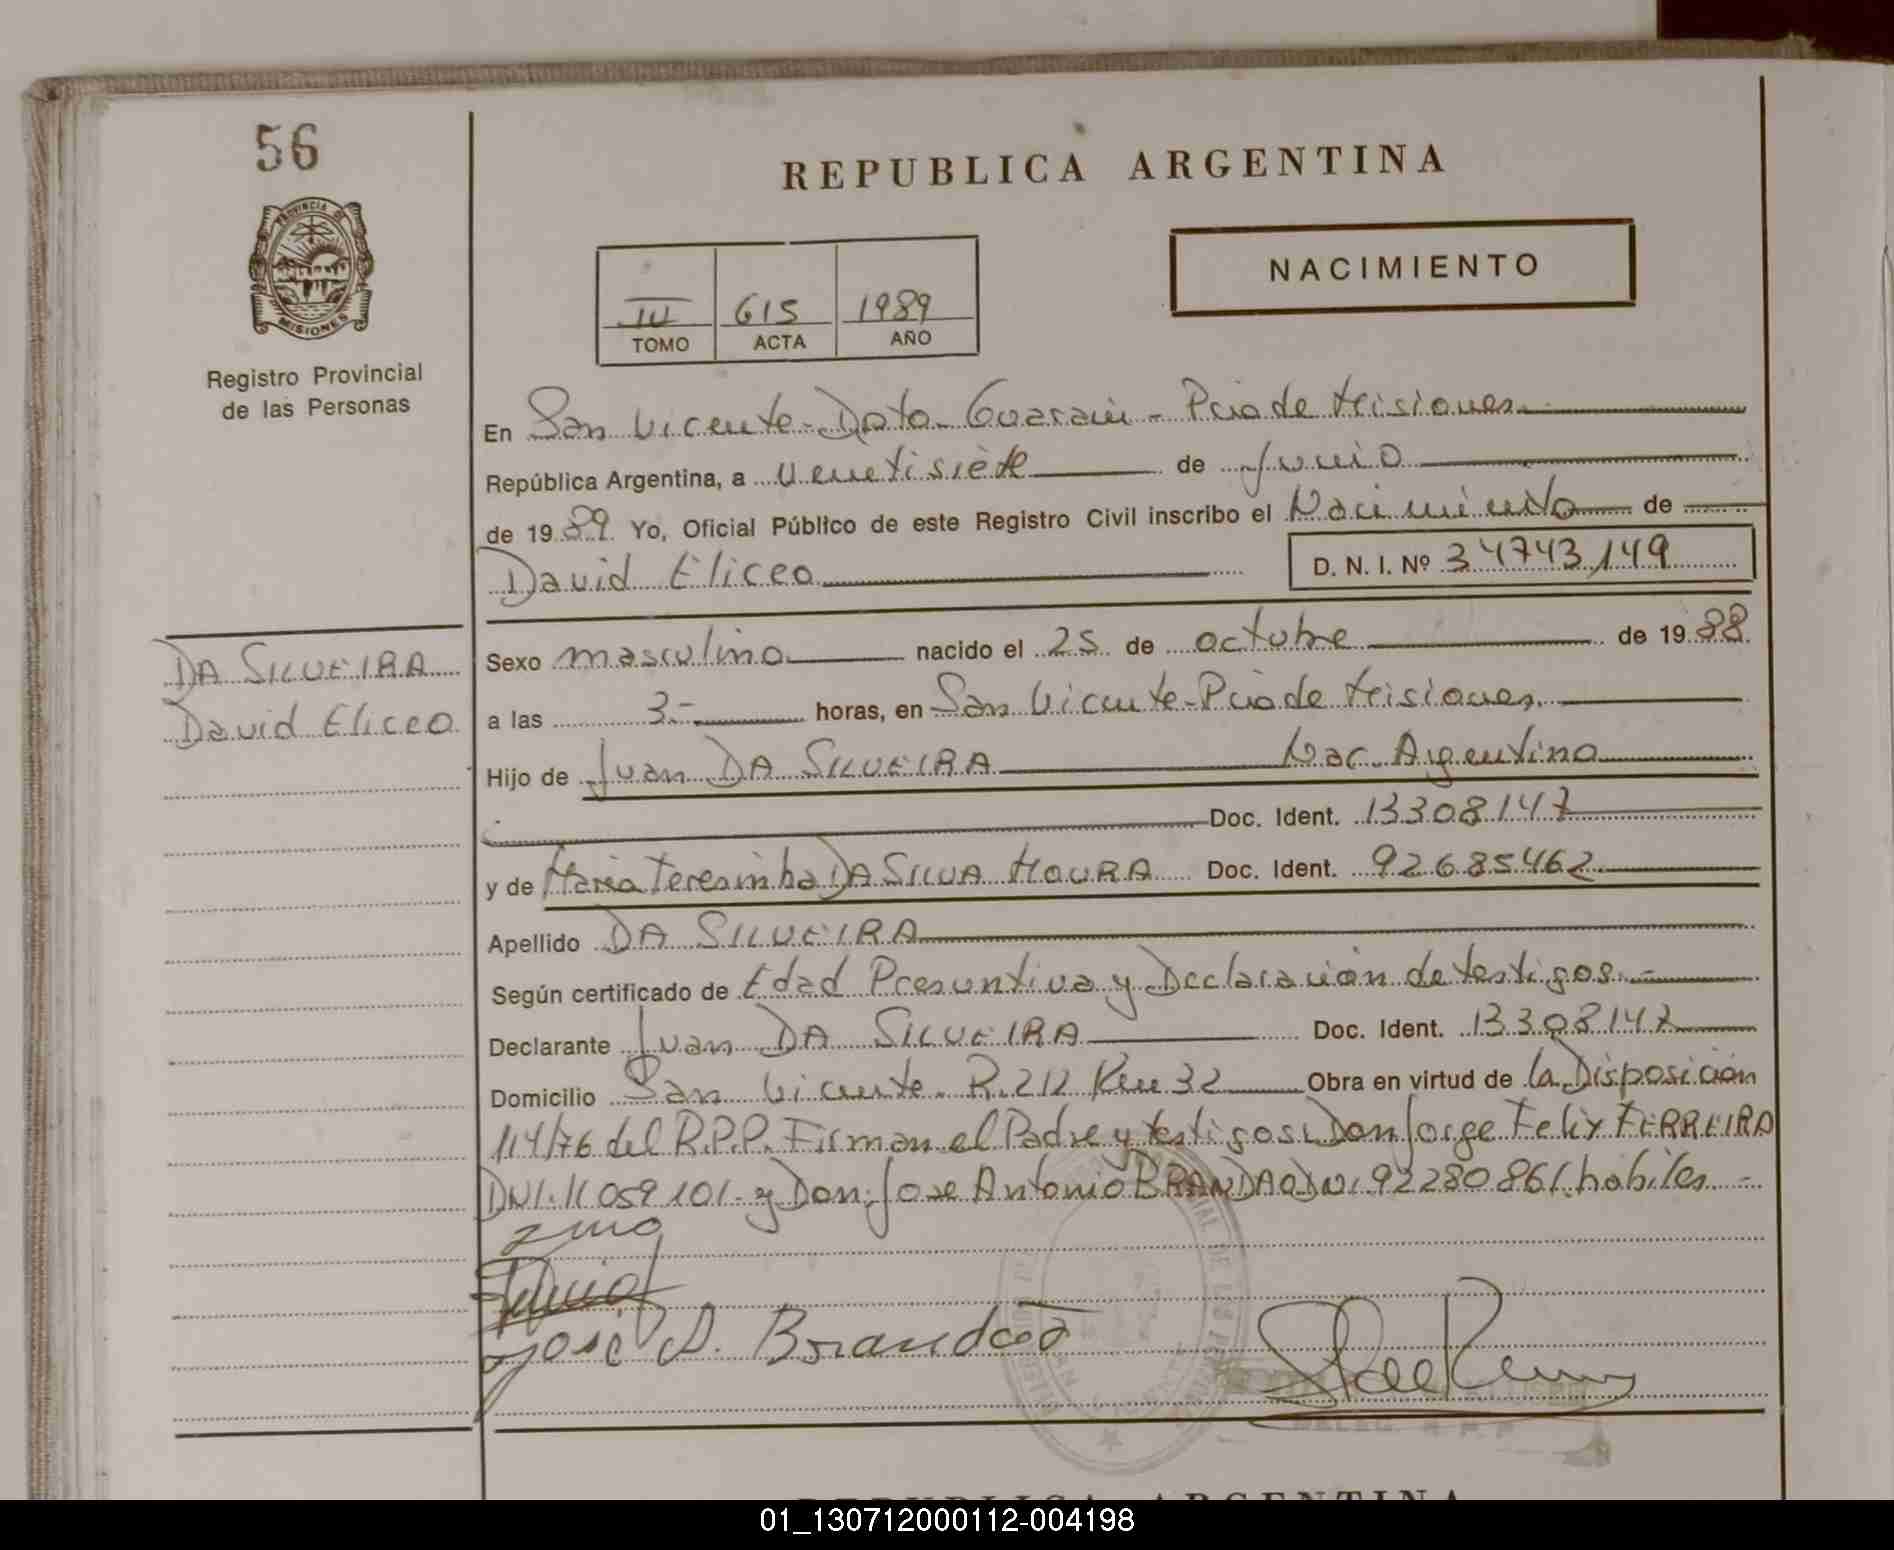 56
REPUBLICA ARGENTINA
PROVINCIA DE
MISIONES
NACIMIENTO
III 615 1989
TOMO ACTA AÑO
Registro Provincial
de las Personas
En San Vicente - Dpto. Guaraní - Pcia de Misiones.
República Argentina, a veintisiete de Junio
de 1989. Yo, Oficial Público de este Registro Civil inscribo el Nacimiento de
David Eliceo D. N. I. Nº 34743,149
DA SILVEIRA
David Eliceo
Sexo masculino nacido el 25 de octubre de 1988.
a las 3.- horas, en San Vicente - Pcia de Misiones.
Hijo de Juan DA SILVEIRA Nac. Argentino
Doc. Ident. 13308147
y de Maria Teresinha DA SILVA MOURA Doc. Ident. 92685462
Apellido DA SILVEIRA
Según certificado de Edad Presuntiva y Declaración de testigos. -
Declarante Juan DA SILVEIRA Doc. Ident. 13308147
Domicilio San Vicente - R. 212 Km 32 Obra en virtud de la Disposición
114/76 del R.P.P. Firman el Padre y testigos: Don Jorge Felix FERREIRA
DNI. 11059101 - y Don Jose Antonio BRANDAO DNI 92280861. habiles -
José A. Brandão
REPUBLICA ARGENTINA
01_130712000112-004198